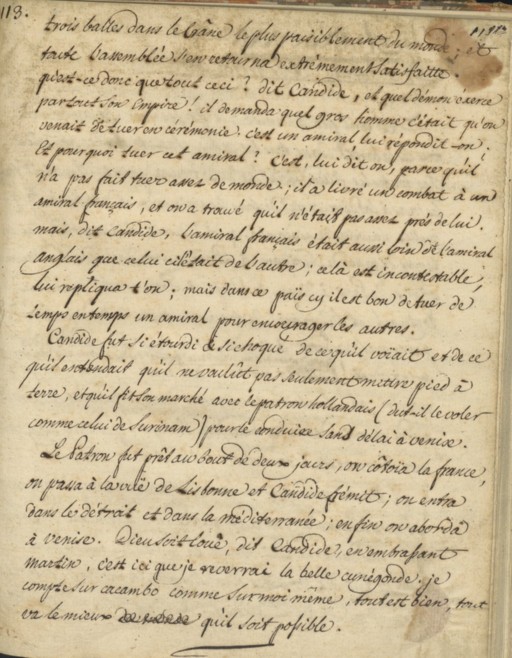 113.
trois balles dans le Crâne le plus paisiblement du monde ; et
toute l'assemblée s'en retourna extrêmement satisfaitte.
qu'est-ce donc que tout ceci ? dit Candide, et quel démon exerce
partout son Empire ! il demanda quel gros homme c'était qu'on
venait de tuer en cérémonie. c'est un amiral lui répondit-on.
Et pourquoi tuer cet amiral ? C'est, lui dit on, parce qu'il
n'a pas fait tuer assez de monde ; il a livré un combat à un
amiral français, et on a trouvé qu'il n'était pas assez près de lui.
mais, dit Candide, l'amiral français était aussi loin de l'amiral
anglais que celui ci l'était de l'autre ; celà est incontestable,
lui répliqua t'on ; mais dans ce païs cy il est bon de tuer de
temps en temps un amiral pour encourager les autres.
Candide fut si étourdi & si choqué de ce qu'il voïait et de ce
qu'il entendait qu'il ne voulût pas seulement mettre pied à
terre, et qu'il fit son marché avec le patron hollandais (dut-il le voler
comme celui de Surinam) pour le conduire sans délai à venise.
Le Patron fut prêt au bout de deux jours, on côtoïa la france,
on passa à la vuë de Lisbonne et Candide frémit ; on entra
dans le détroit et dans la méditerranée ; enfin on aborda
à venise. Dieu soit loué, dit Candide, en embrassant
martin, c'est ici que je reverrai la belle cunégonde. je
compte sur cacambo comme sur moi même, tout est bien, tout
va le mieux qu'il soit possible.